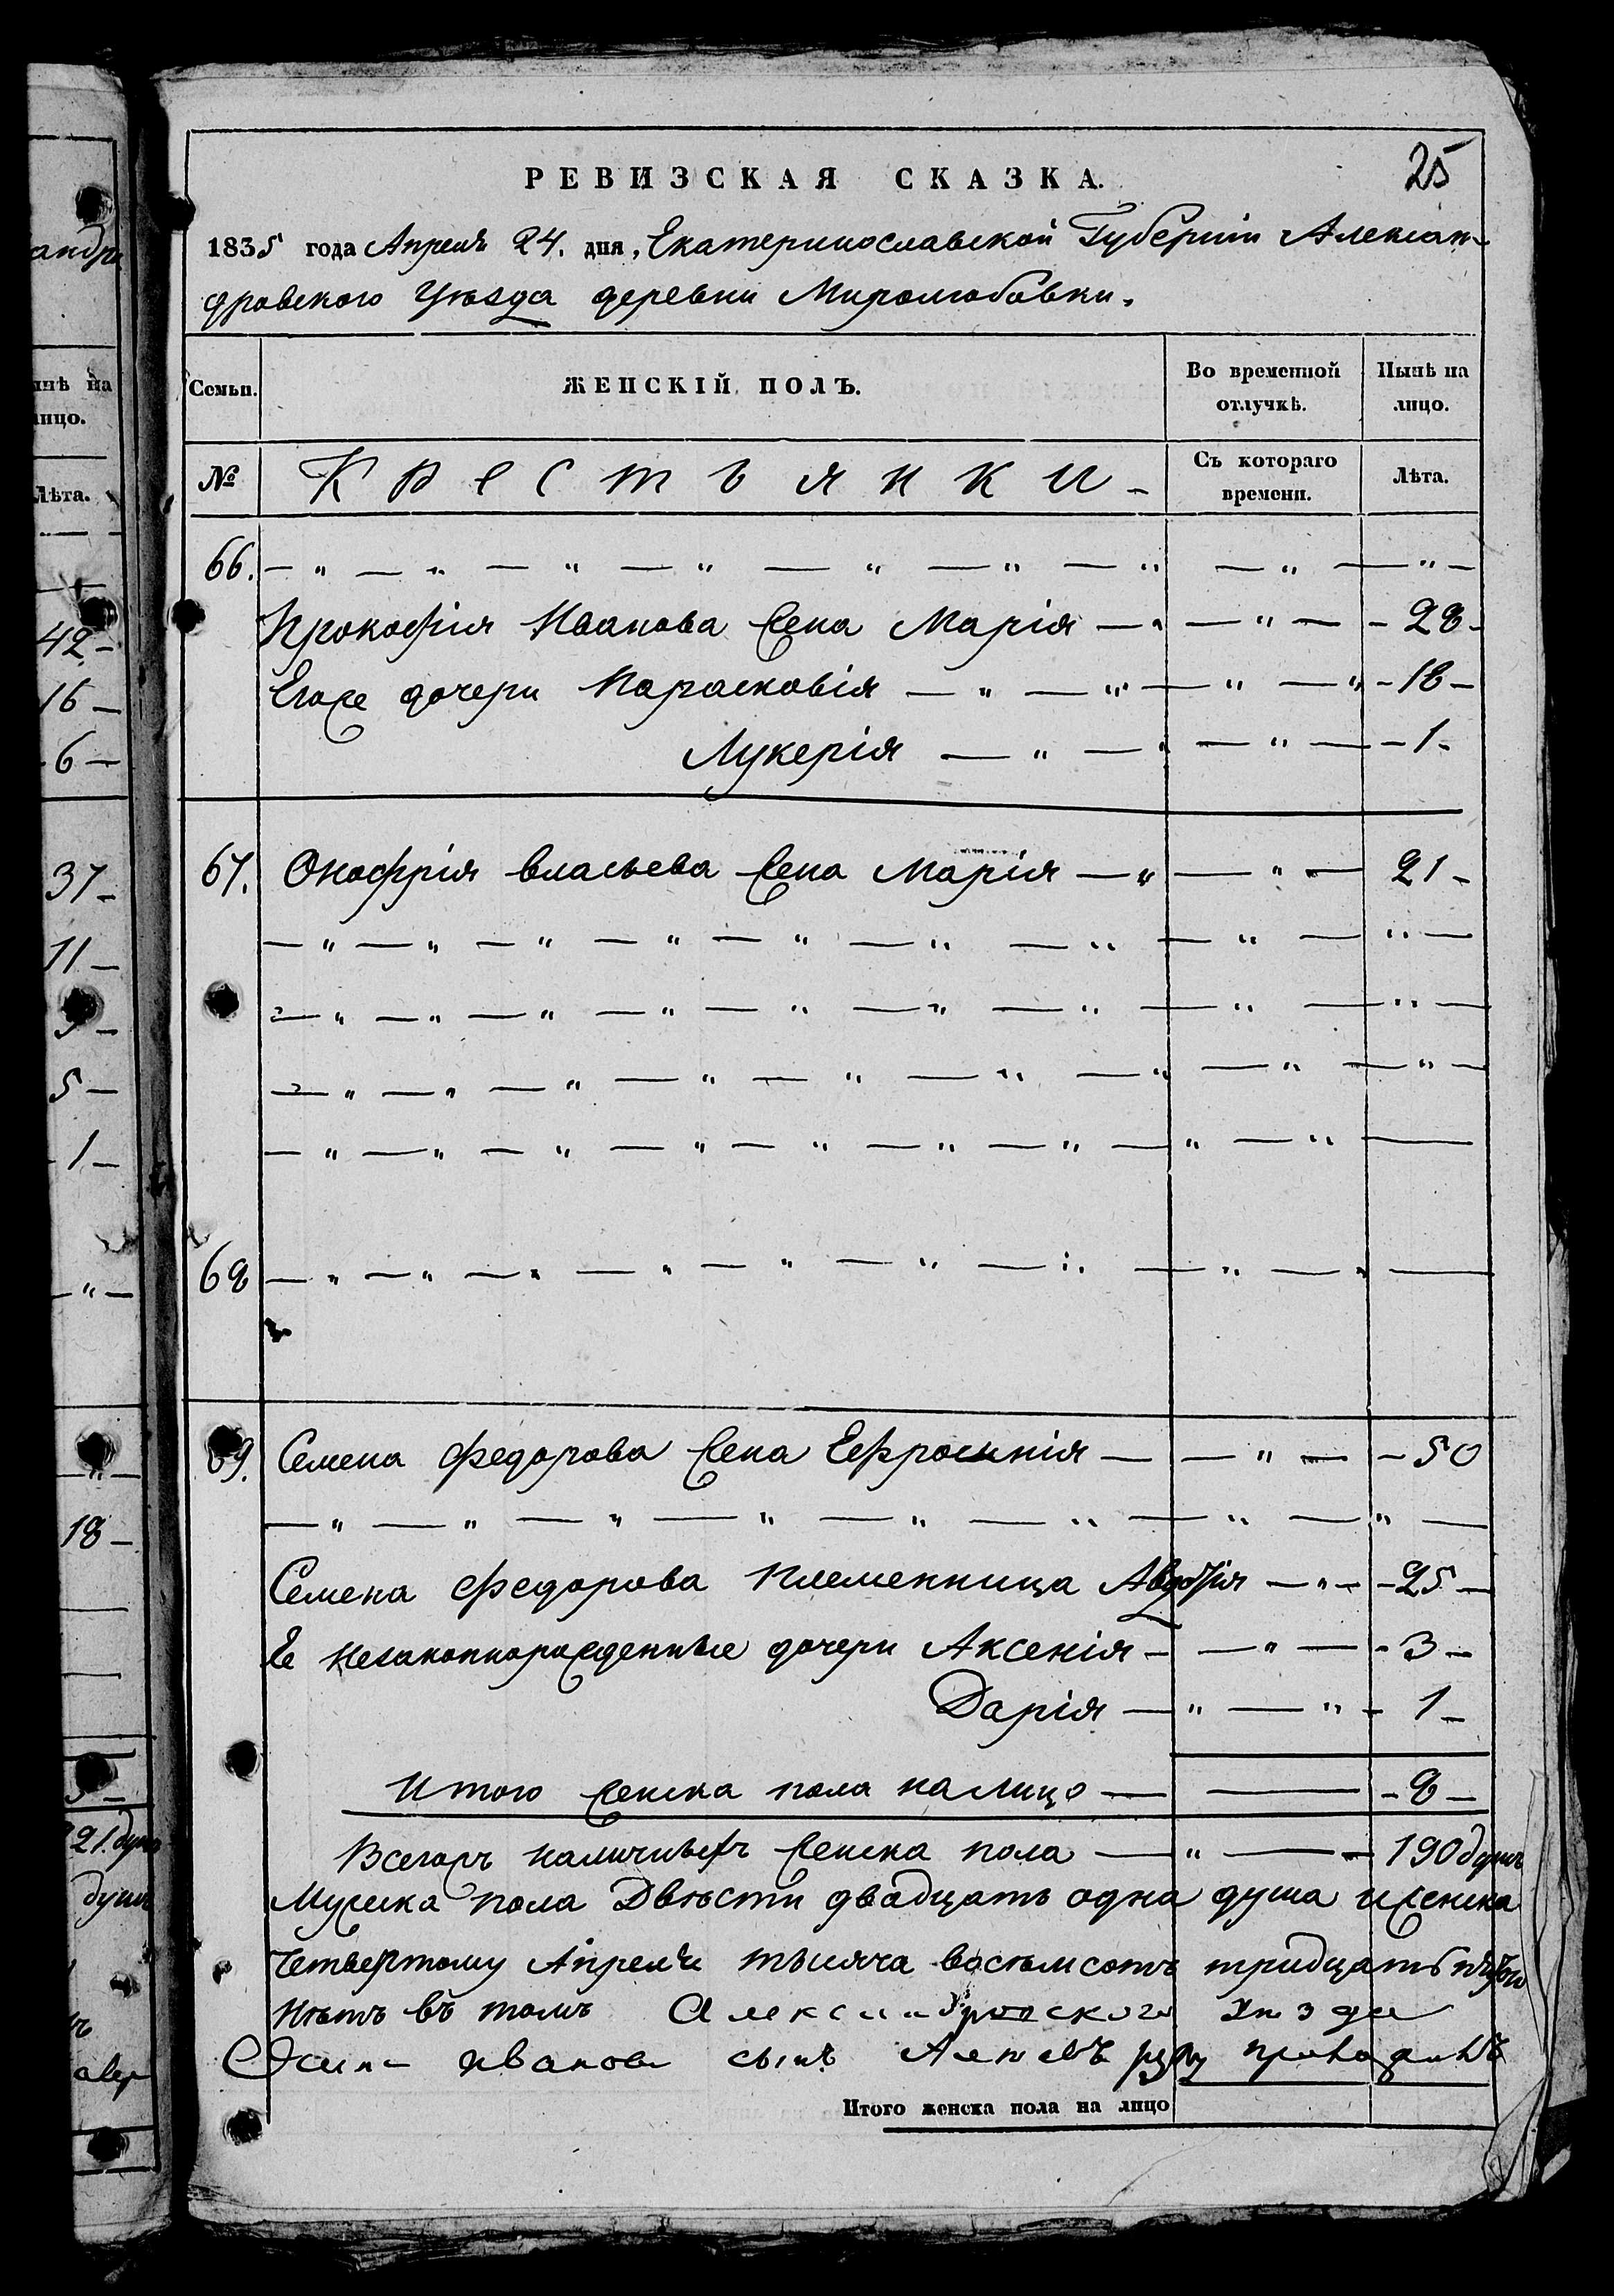 25
РЕВИЗСКАЯ СКАЗКА.
1835 года Апреля 24. дня, Екатеринославской Губерніи Алексан-
дровского Уѣзда деревни Миролюбовки.
Семьи. ЖЕНСКІЙ ПОЛЪ. Во временной отлучкѣ. Нынѣ на лицо.
№ Крестьянки - Съ котораго времени. Лѣта.
66. — " — " — " — " — " — " — " — " — " —
Прокофія Иванова жена Марія — " — " — - 28 -
Егоже дочери Парасковія — " — " — " — " - 18 -
Лукерія — " — " — " — - 1 -
67. Онофрія Власьева жена Марія — " — " — 21 -
— " — " — " — " — " — " — " — " — " —
— " — " — " — " — " — " — " — " — " —
— " — " — " — " — " — " — " — " — " —
— " — " — " — " — " — " — " — " — " —
68 — " — " — " — " — " — " — " — " — " —
69. Семена Федорова жена Ефросинія — — " — - 50
— " — " — " — " — " — " — " — " —
Семена Федорова племенница Авдотія — " — - 25 —
Ее незаконнорожденные дочери Аксенія - — " — - 3 —
Дарія — " — " - 1 -
Итого женска пола налицо — — - 8 -
Всегожъ наличныхъ женска пола — " — 190 душъ
Мужска пола Двѣсти двадцать одна душа и женска
Четвертому Апреля тысяча восемсотъ тридцать пятого
Нѣтъ въ томъ Александровского Уѣзда
Иванов сынъ руку
Итого женска пола на лицо
андро
нынѣ на
лицо.
Лѣта.
42 -
16 —
- 6 —
37 -
11 —
5 —
- 1 -
— " —
18 —
221. душ
душъ